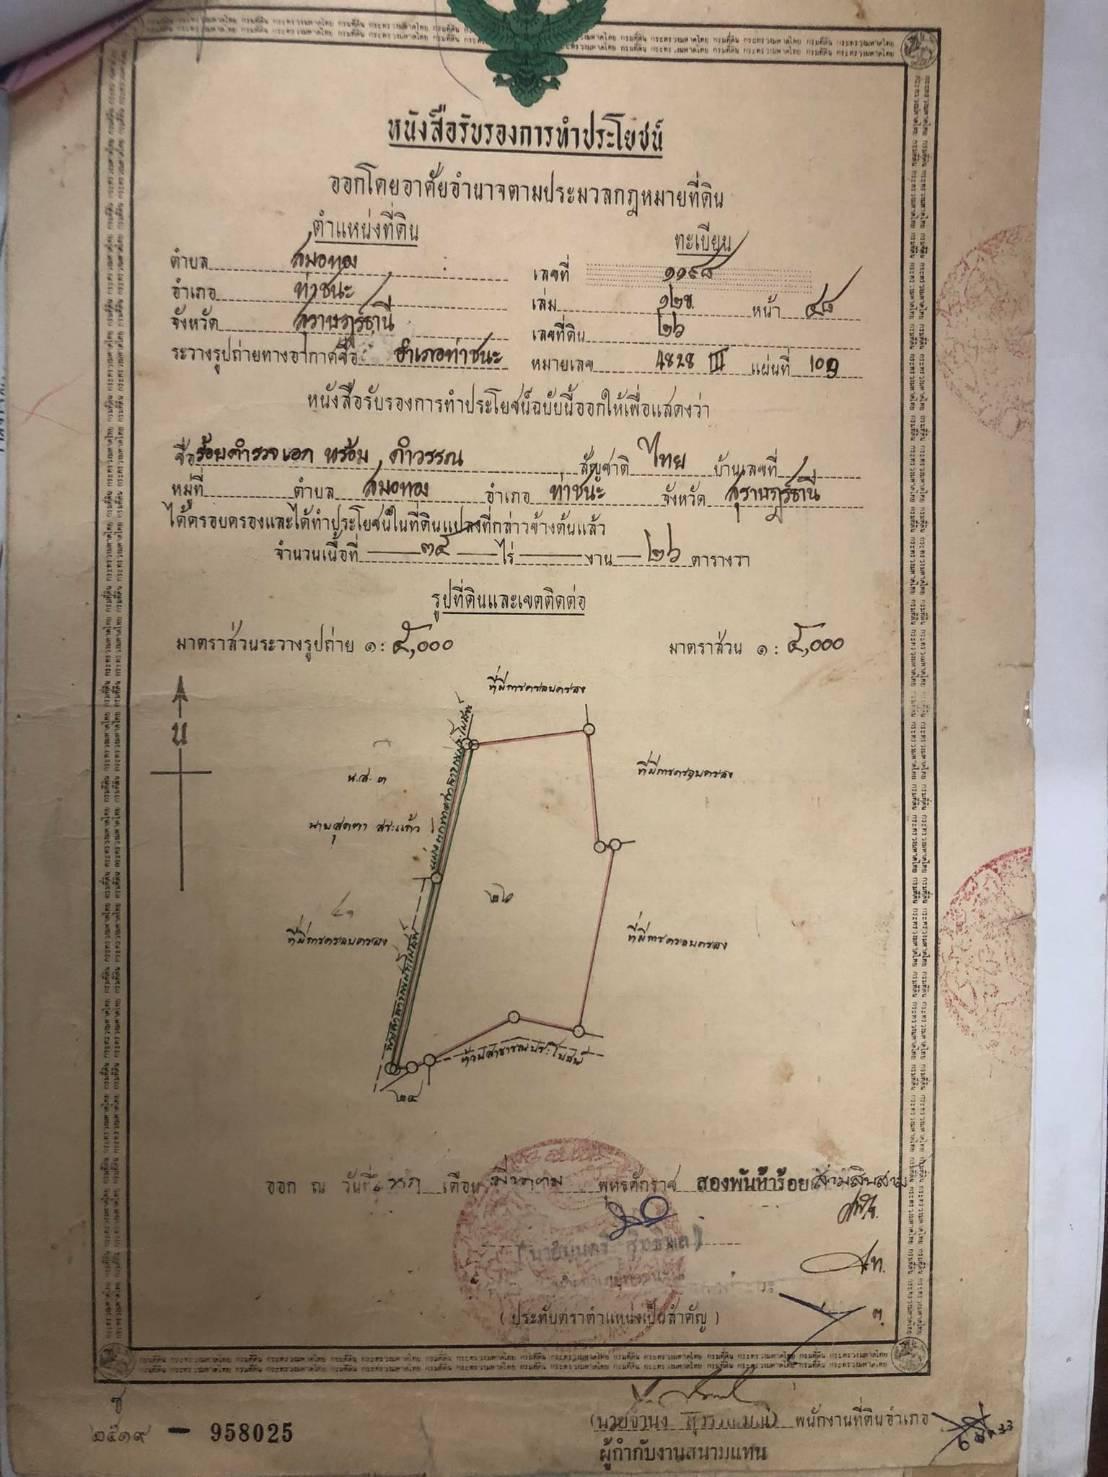 หนังสือรับรองการทำประโยชน์
ออกโดยอาศัยอำนาจตามประมวลกฎหมายที่ดิน
ตำแหน่งที่ดิน
ทะเบียน
ตำบล สมอทอง
เลขที่ ๑๑๙๘
อำเภอ ท่าชนะ
เล่ม ๑๒ข. หน้า ๔๘
จังหวัด สุราษฎร์ธานี
เลขที่ดิน ๒๖
ระวางรูปถ่ายทางอากาศชื่อ อำเภอท่าชนะ หมายเลข 4828 III แผ่นที่ 109
หนังสือรับรองการทำประโยชน์ฉบับนี้ออกให้เพื่อแสดงว่า
ชื่อ ร้อยตำรวจเอก พร้อม ดำวรรณ สัญชาติ ไทย บ้านเลขที่
หมู่ที่ ตำบล สมอทอง อำเภอ ท่าชนะ จังหวัด สุราษฎร์ธานี
ได้ครอบครองและได้ทำประโยชน์ในที่ดินแปลงที่กล่าวข้างต้นแล้ว
จำนวนเนื้อที่ ๓๔ ไร่ งาน ๒๖ ตารางวา
รูปที่ดินและเขตติดต่อ
มาตราส่วนระวางรูปถ่าย ๑ : ๕,๐๐๐
มาตราส่วน ๑ : ๕,๐๐๐
ที่มีการครอบครอง
น
น.ส. ๓
ที่มีการครอบครอง
นายสุดตา สระแก้ว
๒๖
ที่มีการครอบครอง
ที่มีการครอบครอง
ห้วยสาธารณประโยชน์
๒๔
ออก ณ วันที่ เดือน พุทธศักราช สองพันห้าร้อยสามสิบสาม
(ประทับตราตำแหน่งเป็นสำคัญ)
ช
๒๕๑๙ - 958025
พนักงานที่ดินอำเภอ
ผู้กำกับงานสนามแทน